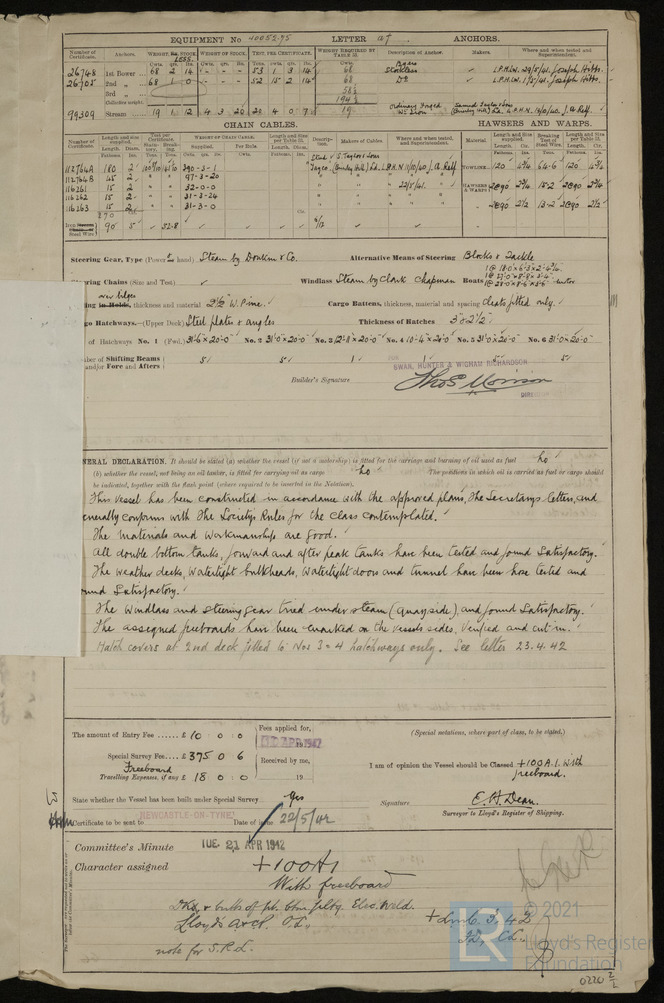 EQUIPMENT No 40052.95 LETTER at ANCHORS.
Number of Certificate. Anchors. WEIGHT, Ex. STOCK LESS. WEIGHT OF STOCK. TEST, PER CERTIFICATE. WEIGHT REQUIRED BY TABLE 53. Description of Anchor. Makers. Where and when tested and Superintendent.
Cwts. qrs. lb. Cwts. qrs. lb. Tons. cwts. qrs. lb. Cwts.
26748 1st Bower 68 2 14 - - - 53 1 3 14 Stockless ✓ L.P.H.W. 29/5/41. Joseph Hibbs.
26705 2nd „ 68 1 0 - - - 52 15 2 14 68 Do ✓ L.P.H.W. 1/5/41. Joseph Hibbs.
3rd „ 58½
Collective weight. 194½
99309 Stream 19 1 12 4 3 20 20 4 0 7 19 Ordinary Forged
CHAIN CABLES. HAWSERS AND WARPS.
Number of Certificate. Length and size supplied. Test per Certificate. WEIGHT OF CHAIN CABLE. Length and Size per Table 53. Description. Makers of Cables. Where and when tested, and Superintendent. Material. Length and size supplied. Breaking Test of Steel Wire. Length and Size per Table 53.
Length. Diam. Supplied. Per Rule. Length. Diam. Length. Cir. Length. Cir.
112764A 180 2 390-3-1 S. Taylor & Sons (Brierley Hill) Ld. L.P.H.N 11/10/40 J. A. Relf. TOWLINE 120 4¾ 64·6 120 4¾
112764B 45 2 97-3-20
116261 15 2 32-0-0 22/5/41. HAWSERS & WARPS 2@90 2¾ 15·2 2@90 2¾
116262 15 2 31-3-24
116263 15 2 31-3-0 2@90 2½ 13·2 2@90 2½
270
90 5 52·8 6/12
Steering Gear, Type (Power & hand) Steam by Donkin & Co. Alternative Means of Steering Blocks & Tackle
ering Chains (Size and Test) ✓ Windlass Steam by Clark Chapman Boats
over bilges
ing in Holds, thickness and material 2½" W. Pine. Cargo Battens, thickness, material and spacing Cleats fitted only.
go Hatchways.—(Upper Deck) Steel plates & angles Thickness of Hatches 3" & 2½"
of Hatchways No. 1 (Fwd.) 31'-6" × 20'-0" No. 2 31'-0" × 20'-0" No. 3 12'-8" × 20'-0" No. 4 10'-4" × 20'-0" No. 5 31'-0" × 20'-0" No. 6 31'-0" × 20'-0"
ber of Shifting Beams and/or Fore and Afters 5 5 1 1 5 5
FOR SWAN, HUNTER & WIGHAM RICHARDSON
Builder's Signature Thos E Morison
DIRECTOR
NERAL DECLARATION. It should be stated (a) whether the vessel (if not a motorship) is fitted for the carriage and burning of oil used as fuel No
(b) whether the vessel, not being an oil tanker, is fitted for carrying oil as cargo No The positions in which oil is carried as fuel or cargo should
be indicated, together with the flash point (where required to be inserted in the Notation).
This vessel has been constructed in accordance with the approved plans, the Secretarys letters, and
enerally conforms with the Society's Rules for the class contemplated.
The materials and workmanship are good.
All double bottom tanks, forward and after peak tanks have been tested and found satisfactory.
The weather decks, watertight bulkheads, watertight doors and tunnel have been hose tested and
ound satisfactory.
The windlass and steering gear tried under steam (quayside), and found satisfactory.
The assigned freeboards have been marked on the vessels sides, verified and cut in.
Hatch covers at 2nd deck fitted to Nos 3 & 4 hatchways only. See letter 23.4.42
The amount of Entry Fee ...... £ 10 : 0 : 0 Fees applied for,
APR 1942
Special Survey Fee... £ 375 0 6
Freeboard
Travelling Expenses, if any £ 18 0 0 Received by me,
19
(Special notations, where part of class, to be stated.)
I am of opinion the Vessel should be Classed +100A.1. With freeboard.
State whether the Vessel has been built under Special Survey Yes Signature E. H. Dean.
Surveyor to Lloyd's Register of Shipping.
Certificate to be sent to NEWCASTLE-ON-TYNE Date of issue 22/5/42
Committee's Minute TUE. 21 APR 1942
Character assigned +100A1
With freeboard
Lloyd's A & CP. C.L.
note for S.R.L.
LR
© 2021
Lloyd's Register
Foundation
0220 2/2